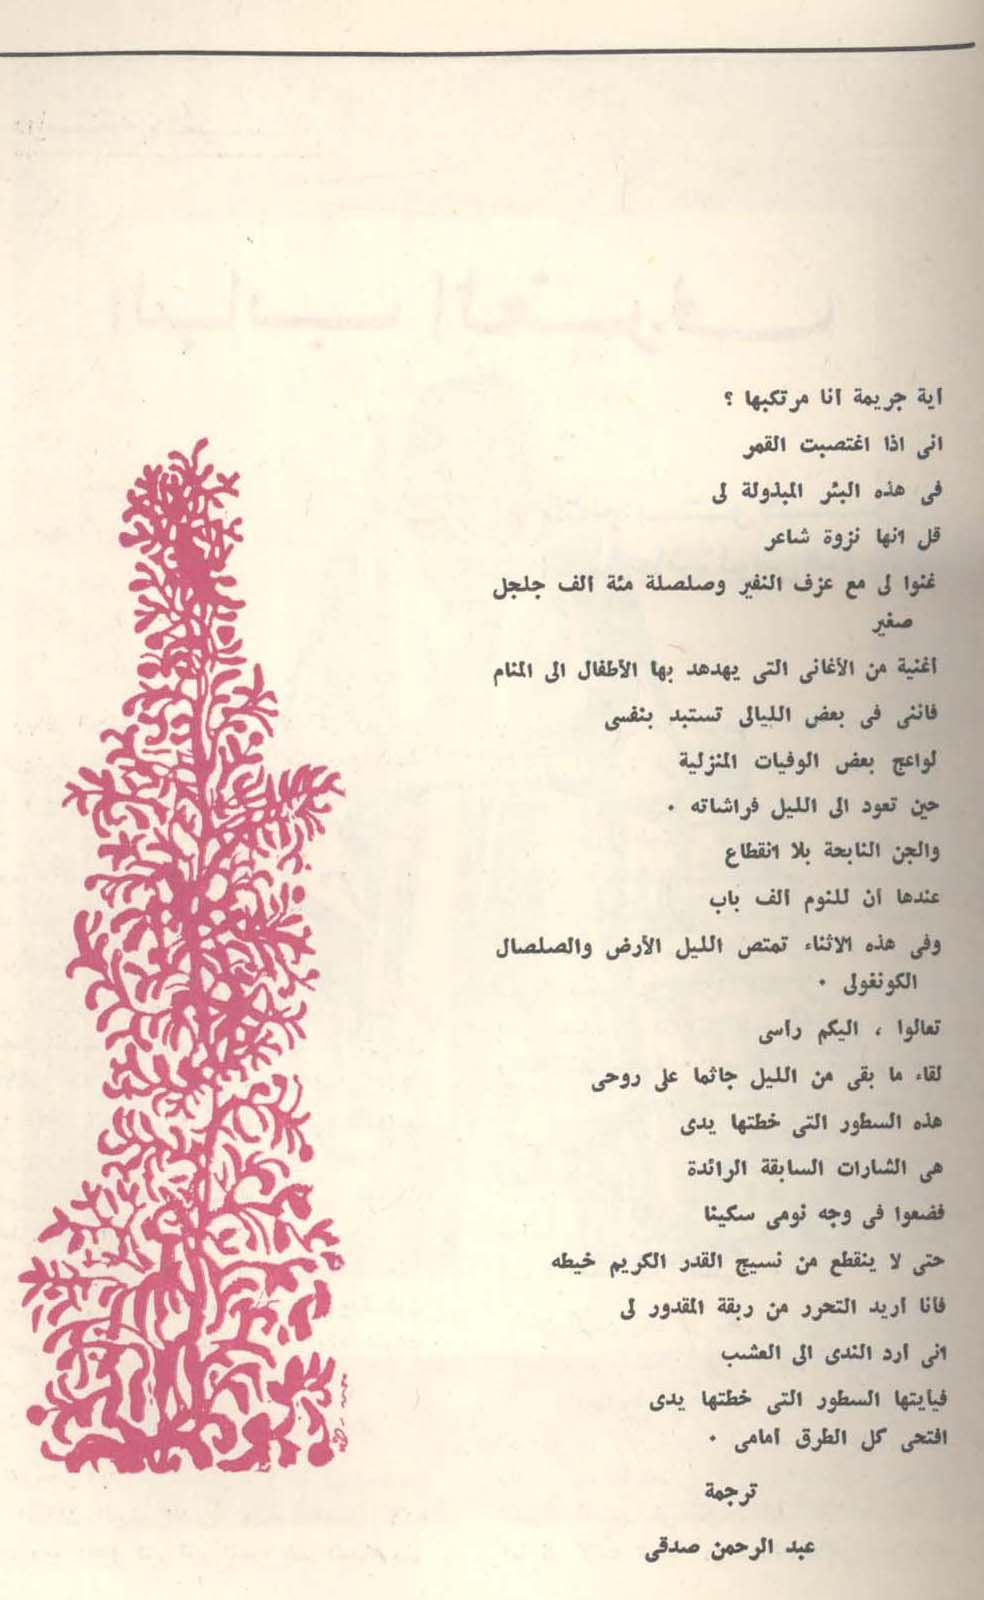 أية جريمة أنا مرتكبها ؟
انى اذا اغتصبت القمر
فى هذه البئر المبذولة لى
قل انها نزوة شاعر
غنوا لى مع عزف النفير وصلصلة مئة ألف جلجل
صغير
أغنية من الأغانى التى يهدهد بها الأطفال الى المنام
فاننى فى بعض الليالى تستبد بنفسى
لواعج بعض الوفيات المنزلية
حين تعود الى الليل فراشاته ٠
والجن النابحة بلا انقطاع
عندها أن للنوم ألف باب
وفى هذه الاثناء تمتص الليل الأرض والصلصال
الكونغولى ٠
تعالوا ، اليكم رأسى
لقاء ما بقى من الليل جاثما على روحى
هذه السطور التى خطتها يدى
هى الشارات السابقة الرائدة
فضعوا فى وجه نومى سكينا
حتى لا ينقطع من نسيج القدر الكريم خيطه
فأنا أريد التحرر من ربقة المقدور لى
انى أرد الندى الى العشب
فيأيتها السطور التى خطتها يدى
افتحى كل الطرق أمامى ٠
ترجمة
عبد الرحمن صدقى